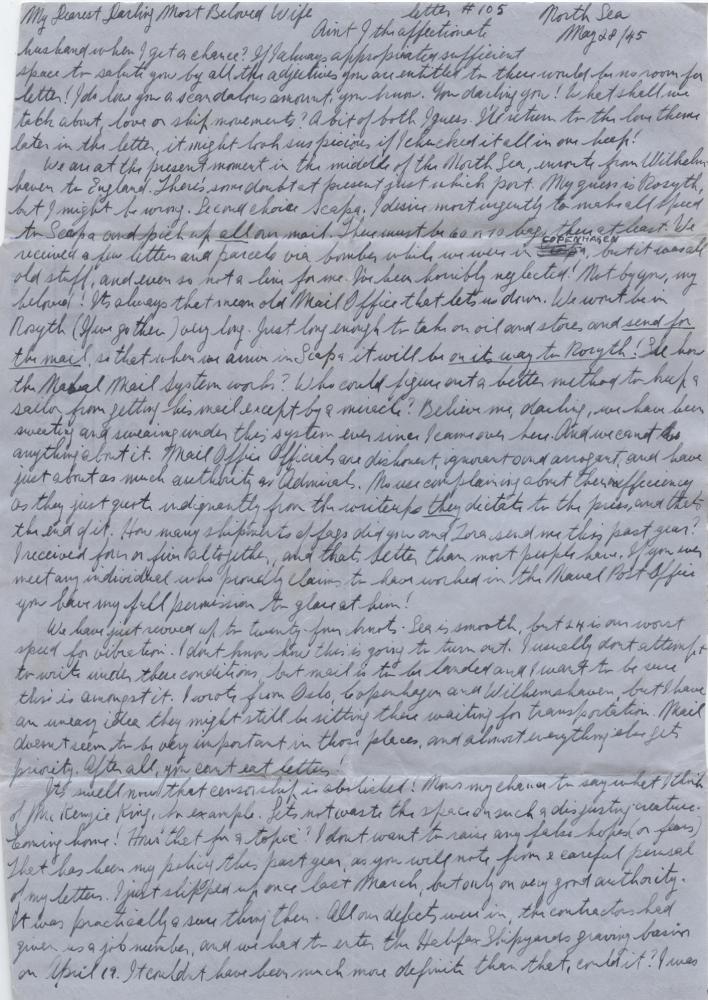 My Dearest Darling Most Beloved Wife letter # 105 North Sea
Aint I the affectionate May 28/45
husband when I get a chance? If I always appropriated sufficient
space to salute you by all the adjectives you are entitled to there would be no room for
letter! I do love you a scandalous amount, you know. You darling you! What shall we
talk about, love or ship movements? A bit of both I guess. I'll return to the love theme
later in the letter, it might look suspicious if I chucked it all in one heap!
We are at the present moment in the middle of the North Sea, enroute from Wilhelm-
haven to England. There's some doubt at present just which port. My guess is Rosyth,
but I might be wrong. Second choice Scapa. I desire most urgently to make all speed
to Scapa and pick up all our mail. There must be 20 or so bags there at least. We
received a few letters and parcels via bomber while we were in COPENHAGEN, but it was all
old stuff, and even so not a line for me. I've been horribly neglected! Not by you, my
beloved! Its always that mean old Mail Office that lets us down. We wont be in
Rosyth (If we go there) very long. Just long enough to take on oil and stores and send for
the mail, so that when we arrive in Scapa it will be on its way to Rosyth! See how
the Naval Mail System works? Who could figure out a better method to keep a
sailor from getting his mail except by a miracle? Believe me, darling, we have been
sweating and swearing under this system ever since I came over here. And we cant do
anything about it. Mail Office Officials are dishonest, ignorant and arrogant, and have
just about as much authority as Admirals. No use complaining about their efficiency
as they just quote indignantly from the writeups they dictate to the press, and thats
the end of it. How many shipments of fags did you and Zora send me this past year?
I received four or five altogether, and thats better than most people have. If you ever
meet any individual who proudly claims to have worked in the Naval Post Office
you have my full permission to glare at him!
We have just revved up to twenty-four knots. Sea is smooth, but 24 is our worst
speed for vibration. I dont know how this is going to turn out. I usually dont attempt
to write under these conditions, but mail is to be landed and I want to be sure
this is amongst it. I wrote from Oslo, Copenhagen and Wilhemshaven, but I have
an uneasy idea they might still be sitting there waiting for transportation. Mail
doesnt seem to be very important in those places, and almost everything else gets
priority. After all, you cant eat letters!
Its swell now that censorship is abolished! Nows my chance to say what I think
of Mc Kenzie King, for example. Lets not waste the space on such a disgusting creature.
Coming home! Hows that for a topic? I dont want to raise any false hopes (or fears)
That has been my policy this past year, as you will note from a careful perusal
of my letters. I just slipped up once last March, but only on very good authority.
It was practically a sure thing then. All our defects were in, the contractors had
given us a job number, and we had to enter the Halifax Shipyards graving basin
on April 19. It couldnt have been much more definite than that, could it? I was